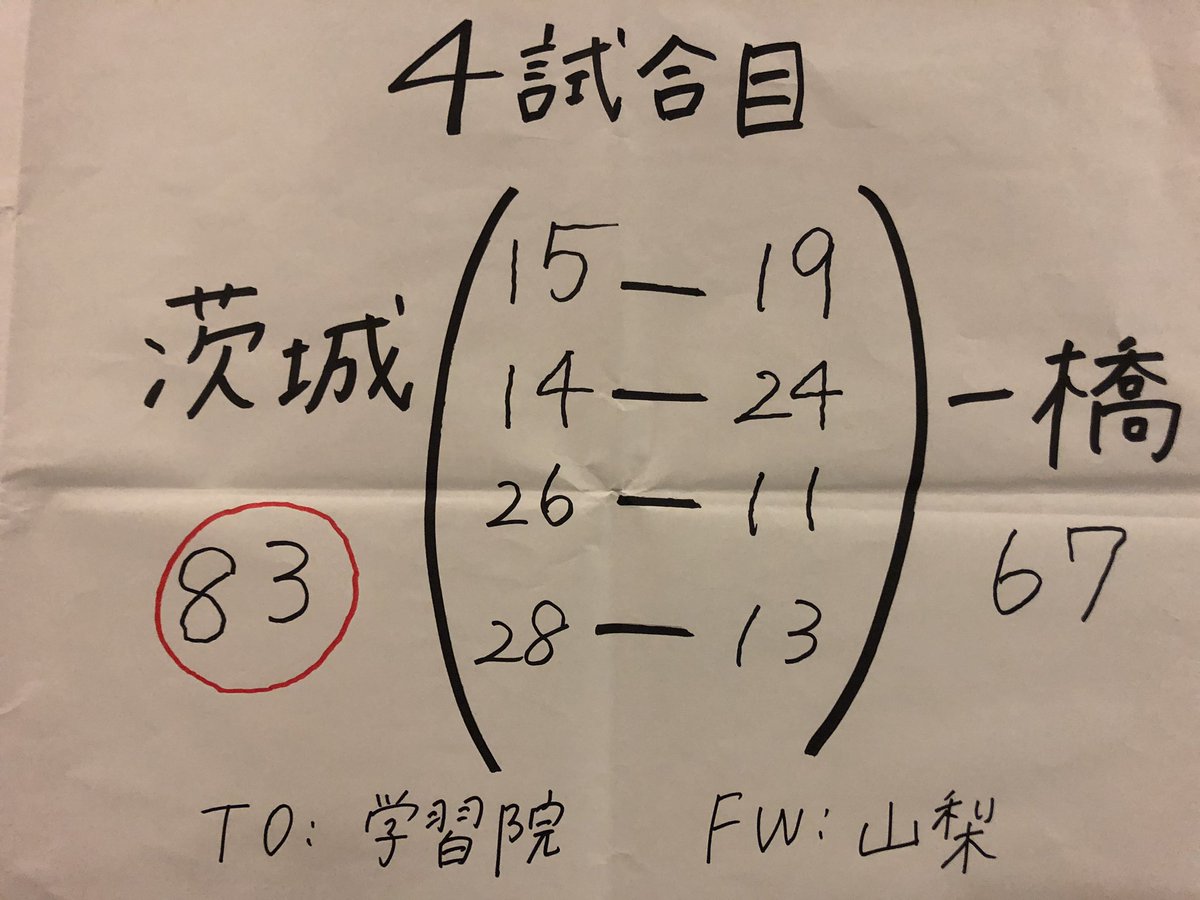 4試合目
15 — 19
茨城 14 — 24 一橋
26 — 11
83 67
28 — 13
TO: 学習院 FW: 山梨